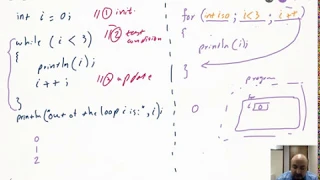 int i = 0; //① init.
while (i < 3) //② test condition
{
println(i);
i++; //③ update
}
println("out of the loop i is:", i);
0
1
2
for (int i=0; i<3; i++)
{
println(i);
}
program
0 1
i 0